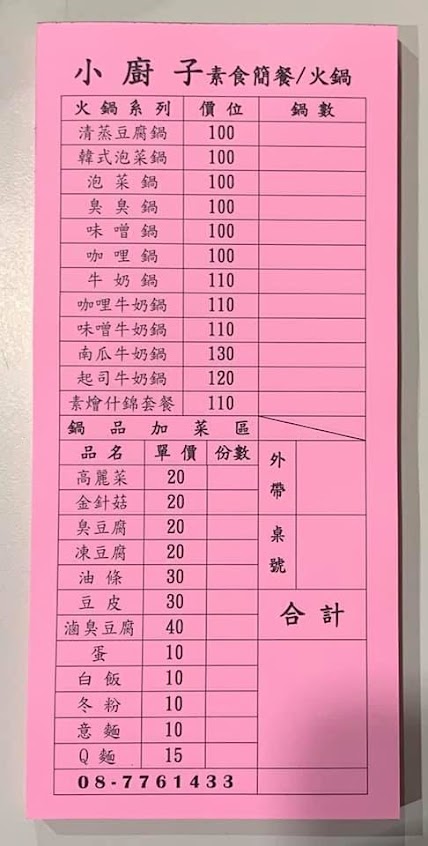 小廚子素食簡餐/火鍋
火鍋系列 價位 鍋數
清蒸豆腐鍋 100
韓式泡菜鍋 100
泡菜鍋 100
臭臭鍋 100
味噌鍋 100
咖哩鍋 100
牛奶鍋 110
咖哩牛奶鍋 110
味噌牛奶鍋 110
南瓜牛奶鍋 130
起司牛奶鍋 120
素燴什錦套餐 110
鍋品加菜區
品名 單價 份數 外帶
高麗菜 20
金針菇 20
臭豆腐 20 桌號
凍豆腐 20
油條 30
豆皮 30 合計
滷臭豆腐 40
蛋 10
白飯 10
冬粉 10
意麵 10
Q麵 15
08-7761433